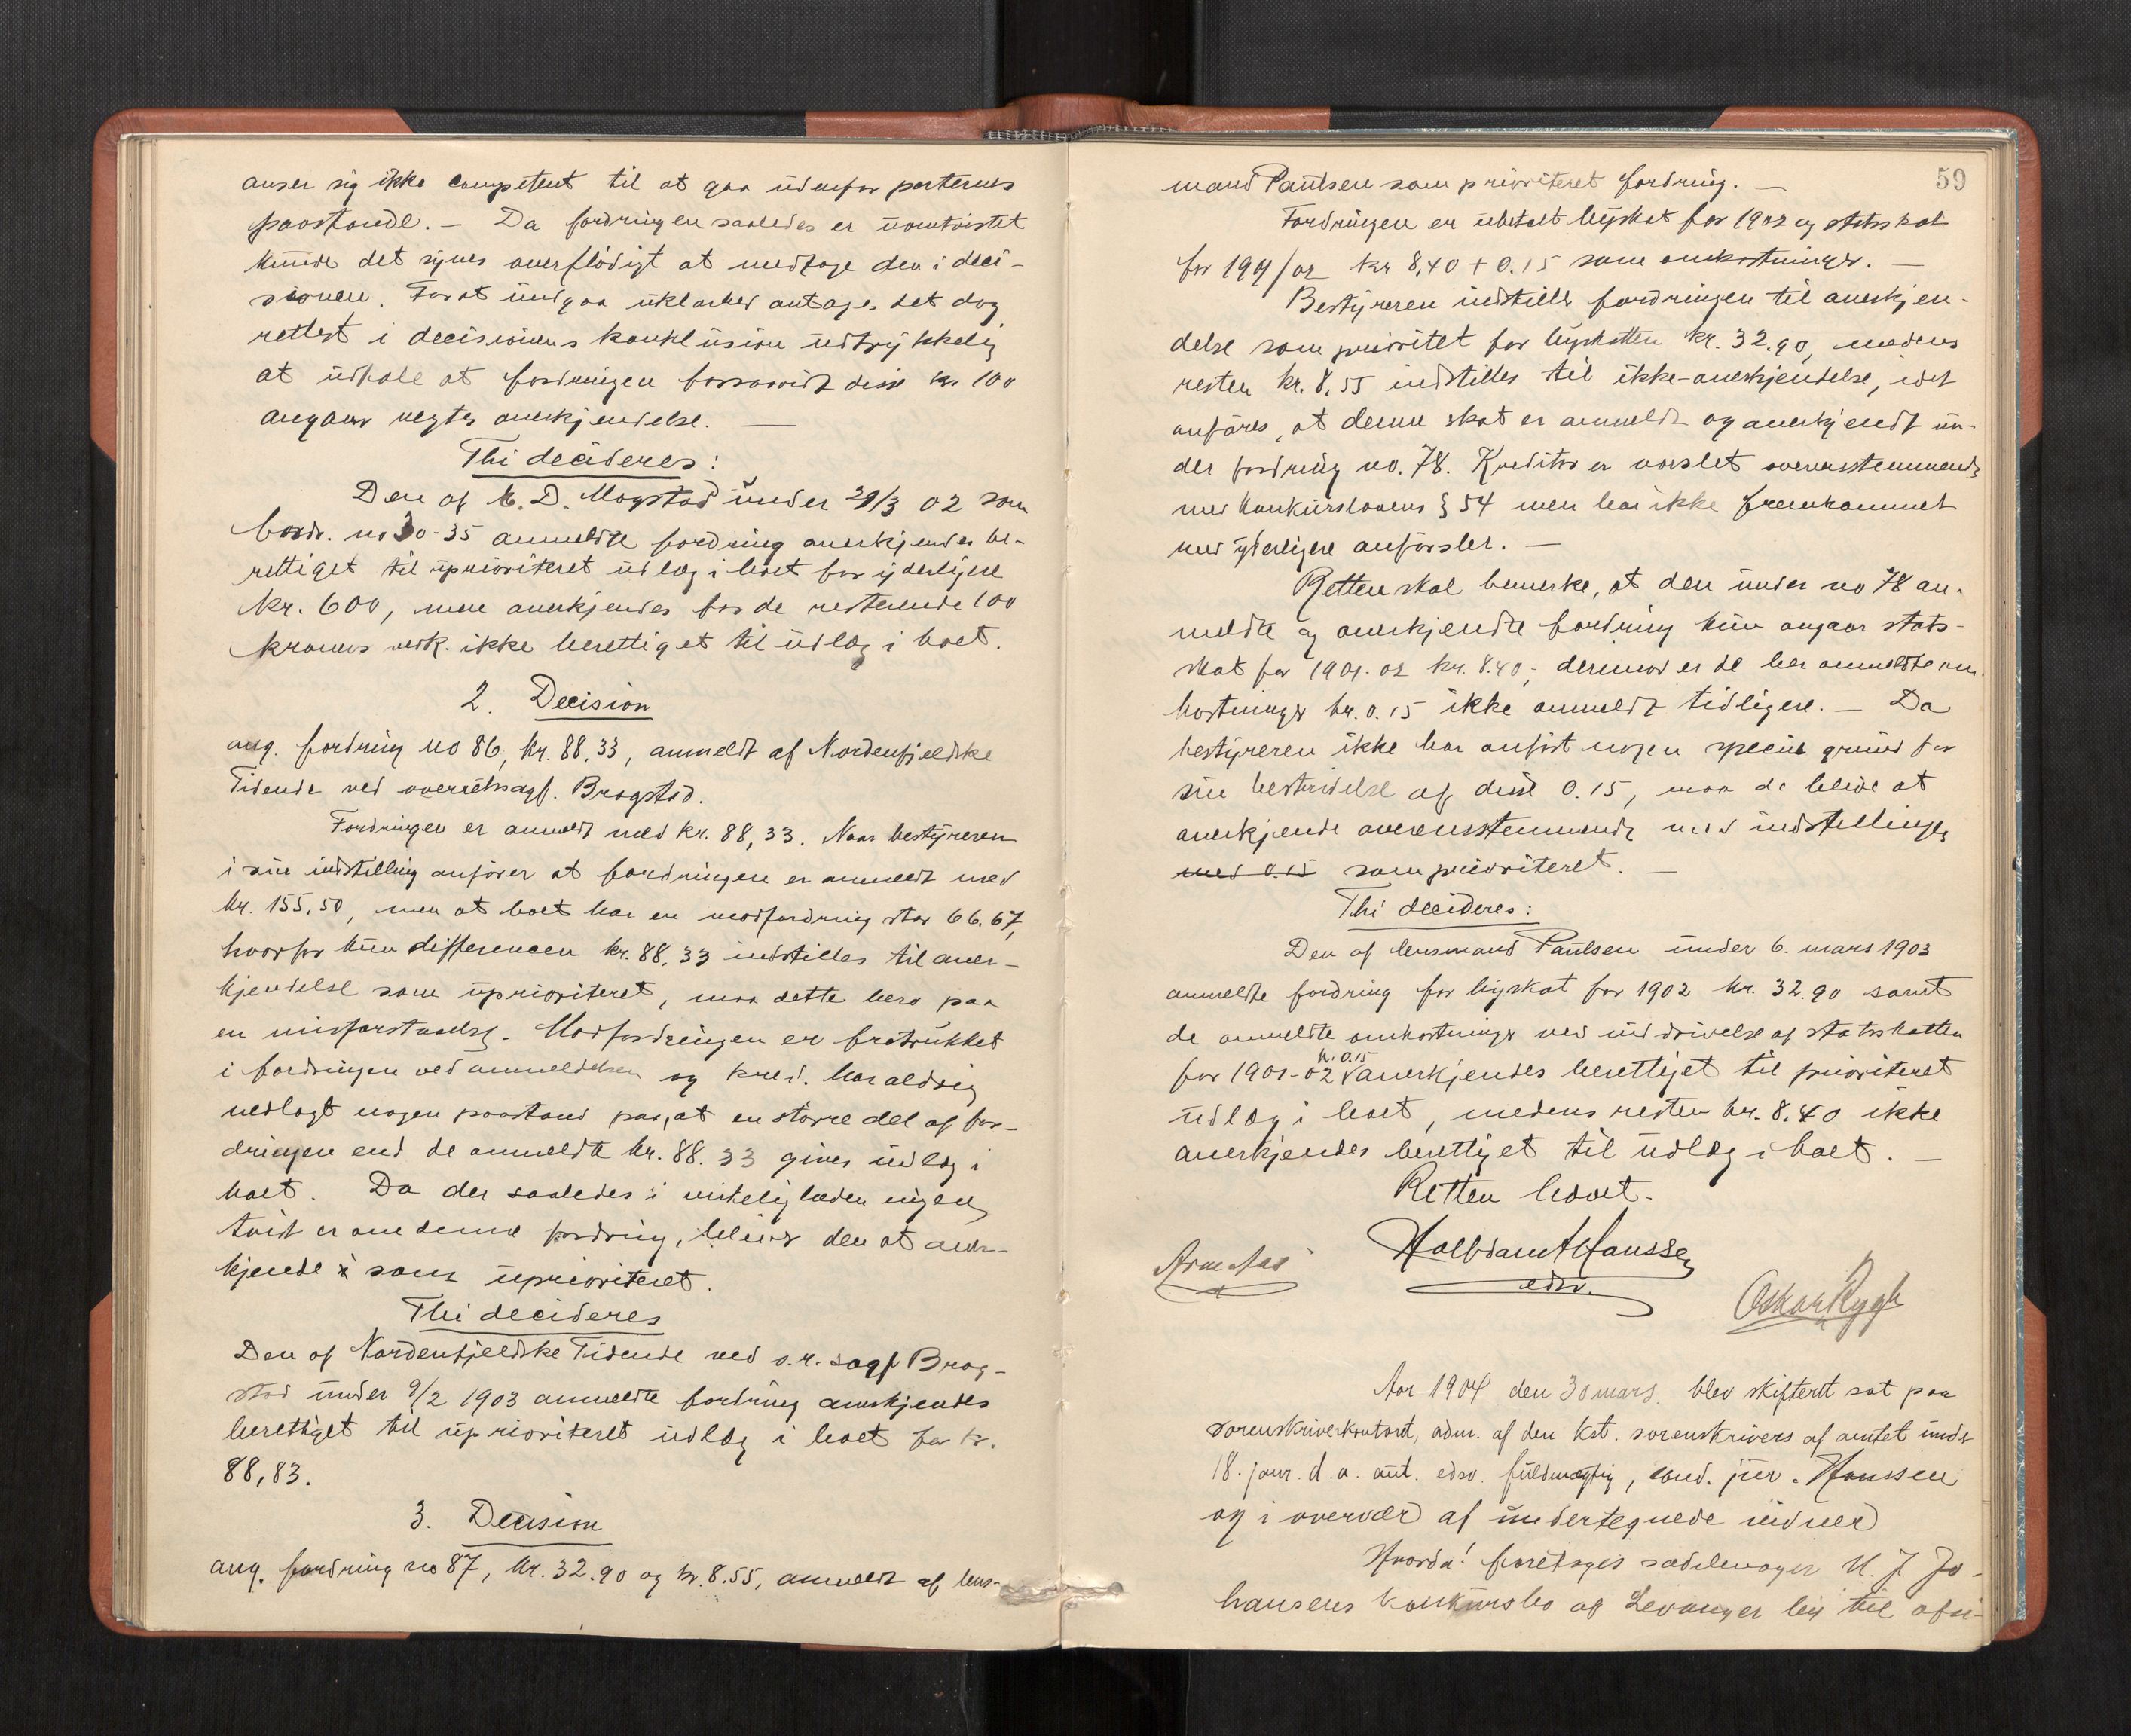 anser sig ikke competent til at gaa udenfor parternes
paastande. – Da fordringen saaledes er uomtvistet
kunde det synes overflødigt at medtage den i deci-
sionen. Forat undgaa uklarhed antages det dog
rettest i decisionens konklusion udtrykkelig
at udtale at fordringen forsaavidt disse kr 100
angaar negtes anerkjendelse. —
Thi decideres:
Den af M. D. Mogstad under 29/3 02 som
fordr. no 30-35 anmeldte fordring anerkjendes be-
rettiget til uprioriteret udlæg i boet for yderligere
kr. 600, men anerkjendes for de resterende 100
kroners vedk. ikke berettiget til udlæg i boet.
2. Decision
ang. fordring no 86, kr. 88,33, anmeldt af Nordenfjeldske
Tidende ved overretssagf. Bragstad.
Fordringen er anmeldt med kr. 88,33. Naar bestyreren
i sin indstilling anfører at fordringen er anmeldt med
kr. 155,50, men at boet har en modfordring stor 66.67,
hvorfor kun differencen kr. 88.33 indstilles til aner-
kjendelse som uprioriteret, maa dette bero paa
en misforstaaelse. Modfordringen er fratrukket
i fordringen ved anmeldelsen og kred. har aldrig
nedlagt nogen paastand paa, at en større del af for-
dringen end de anmeldte kr. 88.33 gives udlæg i
boet. Da der saaledes i virkeligheden ingen
tvist er om denne fordring, bliver den at aner-
kjende som uprioriteret.
Thi decideres
Den af Nordenfjeldske Tidende ved o.r. sagf Brag-
stad under 9/2 1903 anmeldte fordring anerkjendes
berettiget til uprioriteret udlæg i boet for kr.
88,83.
3. Decision
ang. fordring no 87, kr. 32.90 og kr. 8.55, anmeldt af lens-
59
mand Paulsen som prioriteret fordring. —
Fordringen er ubetalt byskat for 1902 og statsskat
for 1901/02 kr 8,40 + 0.15 som omkostninger. —
Bestyreren indstiller fordringen til anerkjen-
delse som prioritet for byskatten kr. 32.90, medens
resten kr. 8,55 indstilles til ikke-anerkjendelse, idet
anføres, at denne skat er anmeldt og anerkjendt un-
der fordring no. 78. Kreditor er varslet overensstemmende
med konkurslovens § 54 men har ikke fremkommet
med yderligere anførsler. —
Retten skal bemerke, at den under no 78 an-
meldte og anerkjendte fordring kun angaar stats-
skat for 1901-02 kr. 8.40; derimod er de her anmeldte om-
kostninger kr. 0.15 ikke anmeldt tidligere. — Da
bestyreren ikke har anført nogen speciel grund for
sin bestridelse af disse 0.15, maa de blive at
anerkjende overensstemmende med indstillingen
med 0.15 som prioriteret. —
Thi decideres:
Den af lensmand Paulsen under 6. mars 1903
anmeldte fordring for byskat for 1902 kr. 32.90 samt
de anmeldte omkostninger ved inddrivelse af statsskatten
kr. 0.15
for 1901-02 anerkjendes berettiget til prioriteret
udlæg i boet, medens resten kr. 8.40 ikke
anerkjendes berettiget til udlæg i boet. —
Retten hævet.
Hansse
edsv.
Oskar Rygh
Aar 1904 den 30 mars. blev skifteret sat paa
sorenskriverkontoret, adm. af den kst. sorenskrivers af amtet under
18. janr. d. a. aut. edsv. fuldmægtig, cand. jur. Hanssen
og i overvær af undertegnede vidner
Hvorda! foretages sadelmager N. J. Jo-
hansens konkursbo af Levanger by til afsi-